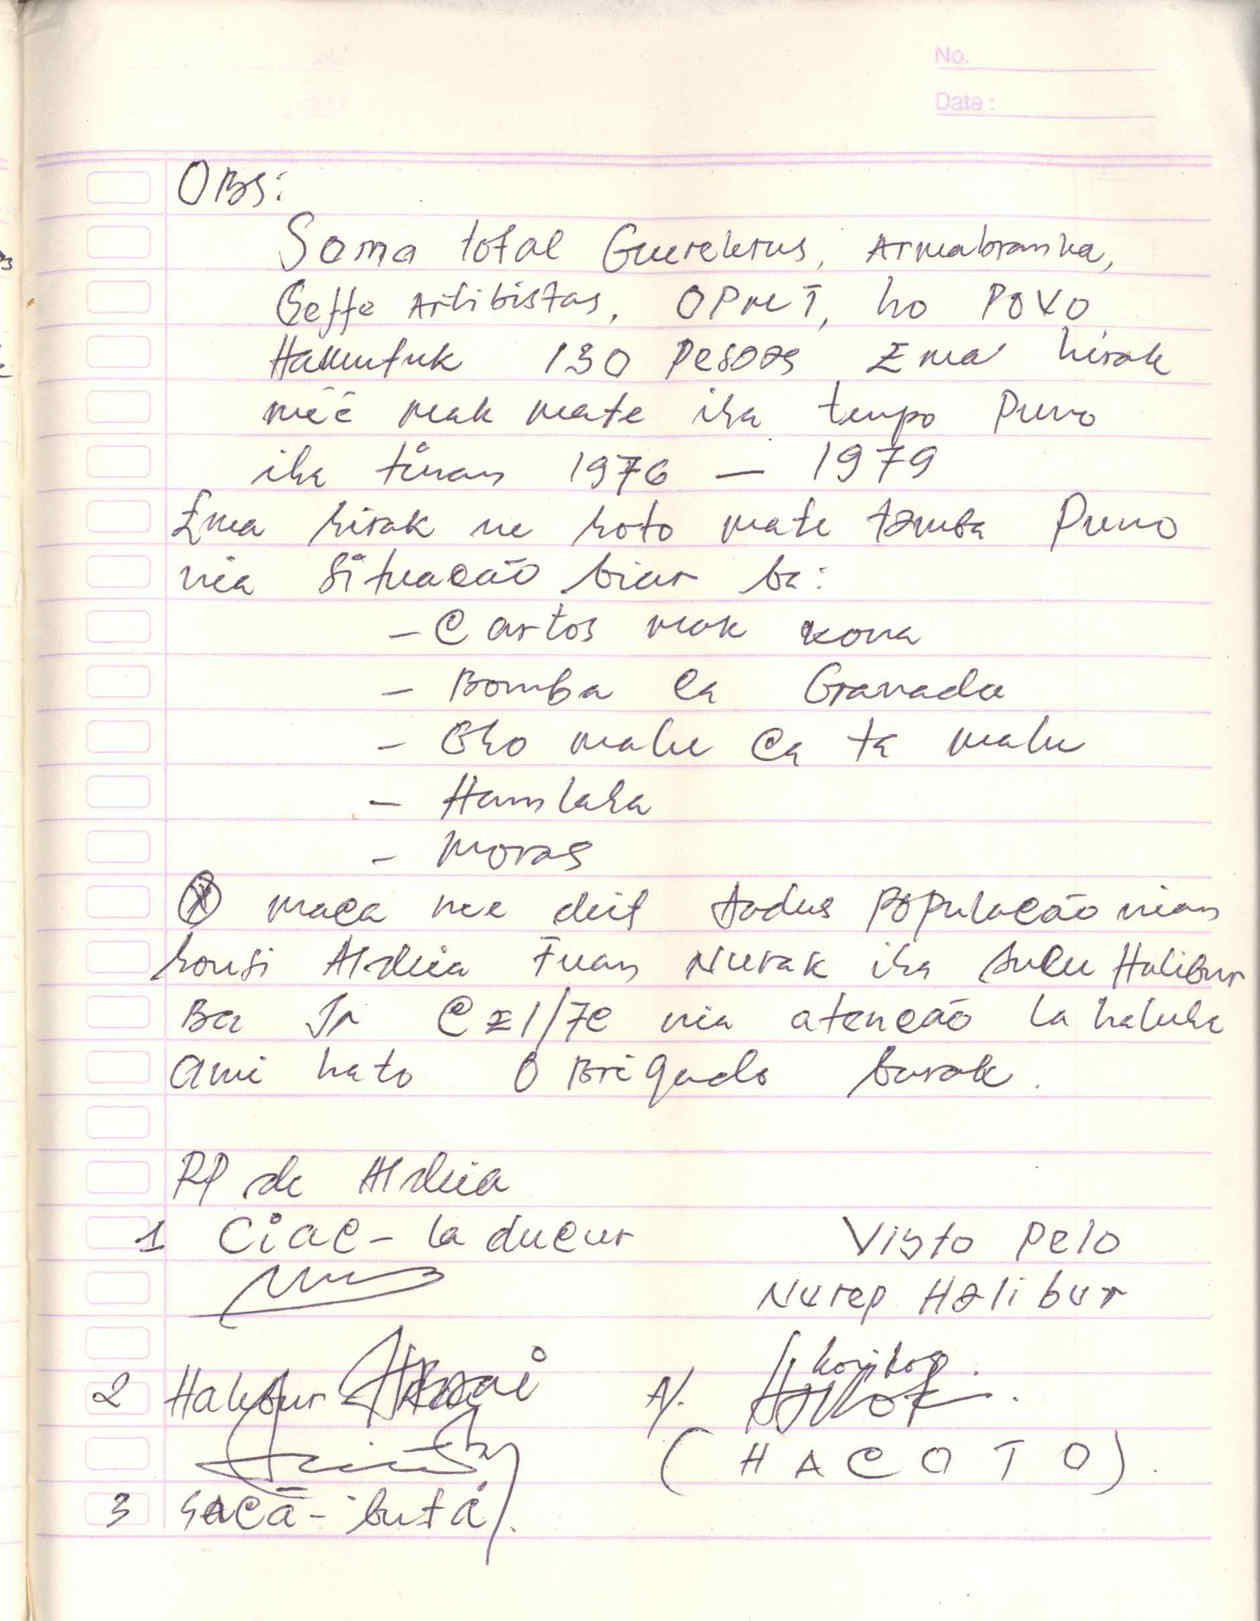 No.
Date:
OBS:
Soma total Guerekrus, Armabranka,
Geffe Artibistas, OPMT, ho POVO
Hamutuk 130 Pesoas Ema hirak
neē mak mate iha tempo Puno
iha tinan 1976 — 1979
Ema hirak ne hoto mate tamba Puno
nia Situacão biar ba:
- Cartos mak kona
- Bomba Ca Granada
- Oho malu Ca ta malu
- Hamlaha
- Moras
maca nee deit todus Populacão nian
housi Aldeia Fuan Nurak iha Sucu Halibur
Ba Jr CEI/7C nia atencão la haluha
Ami hato OBrigado barak.
RP de Aldeia
1 Ciac - la ducur
Visto Pelo
Nurep Halibur
2 Halibur
A/.
(HACOTO).
3 Sacā - buta